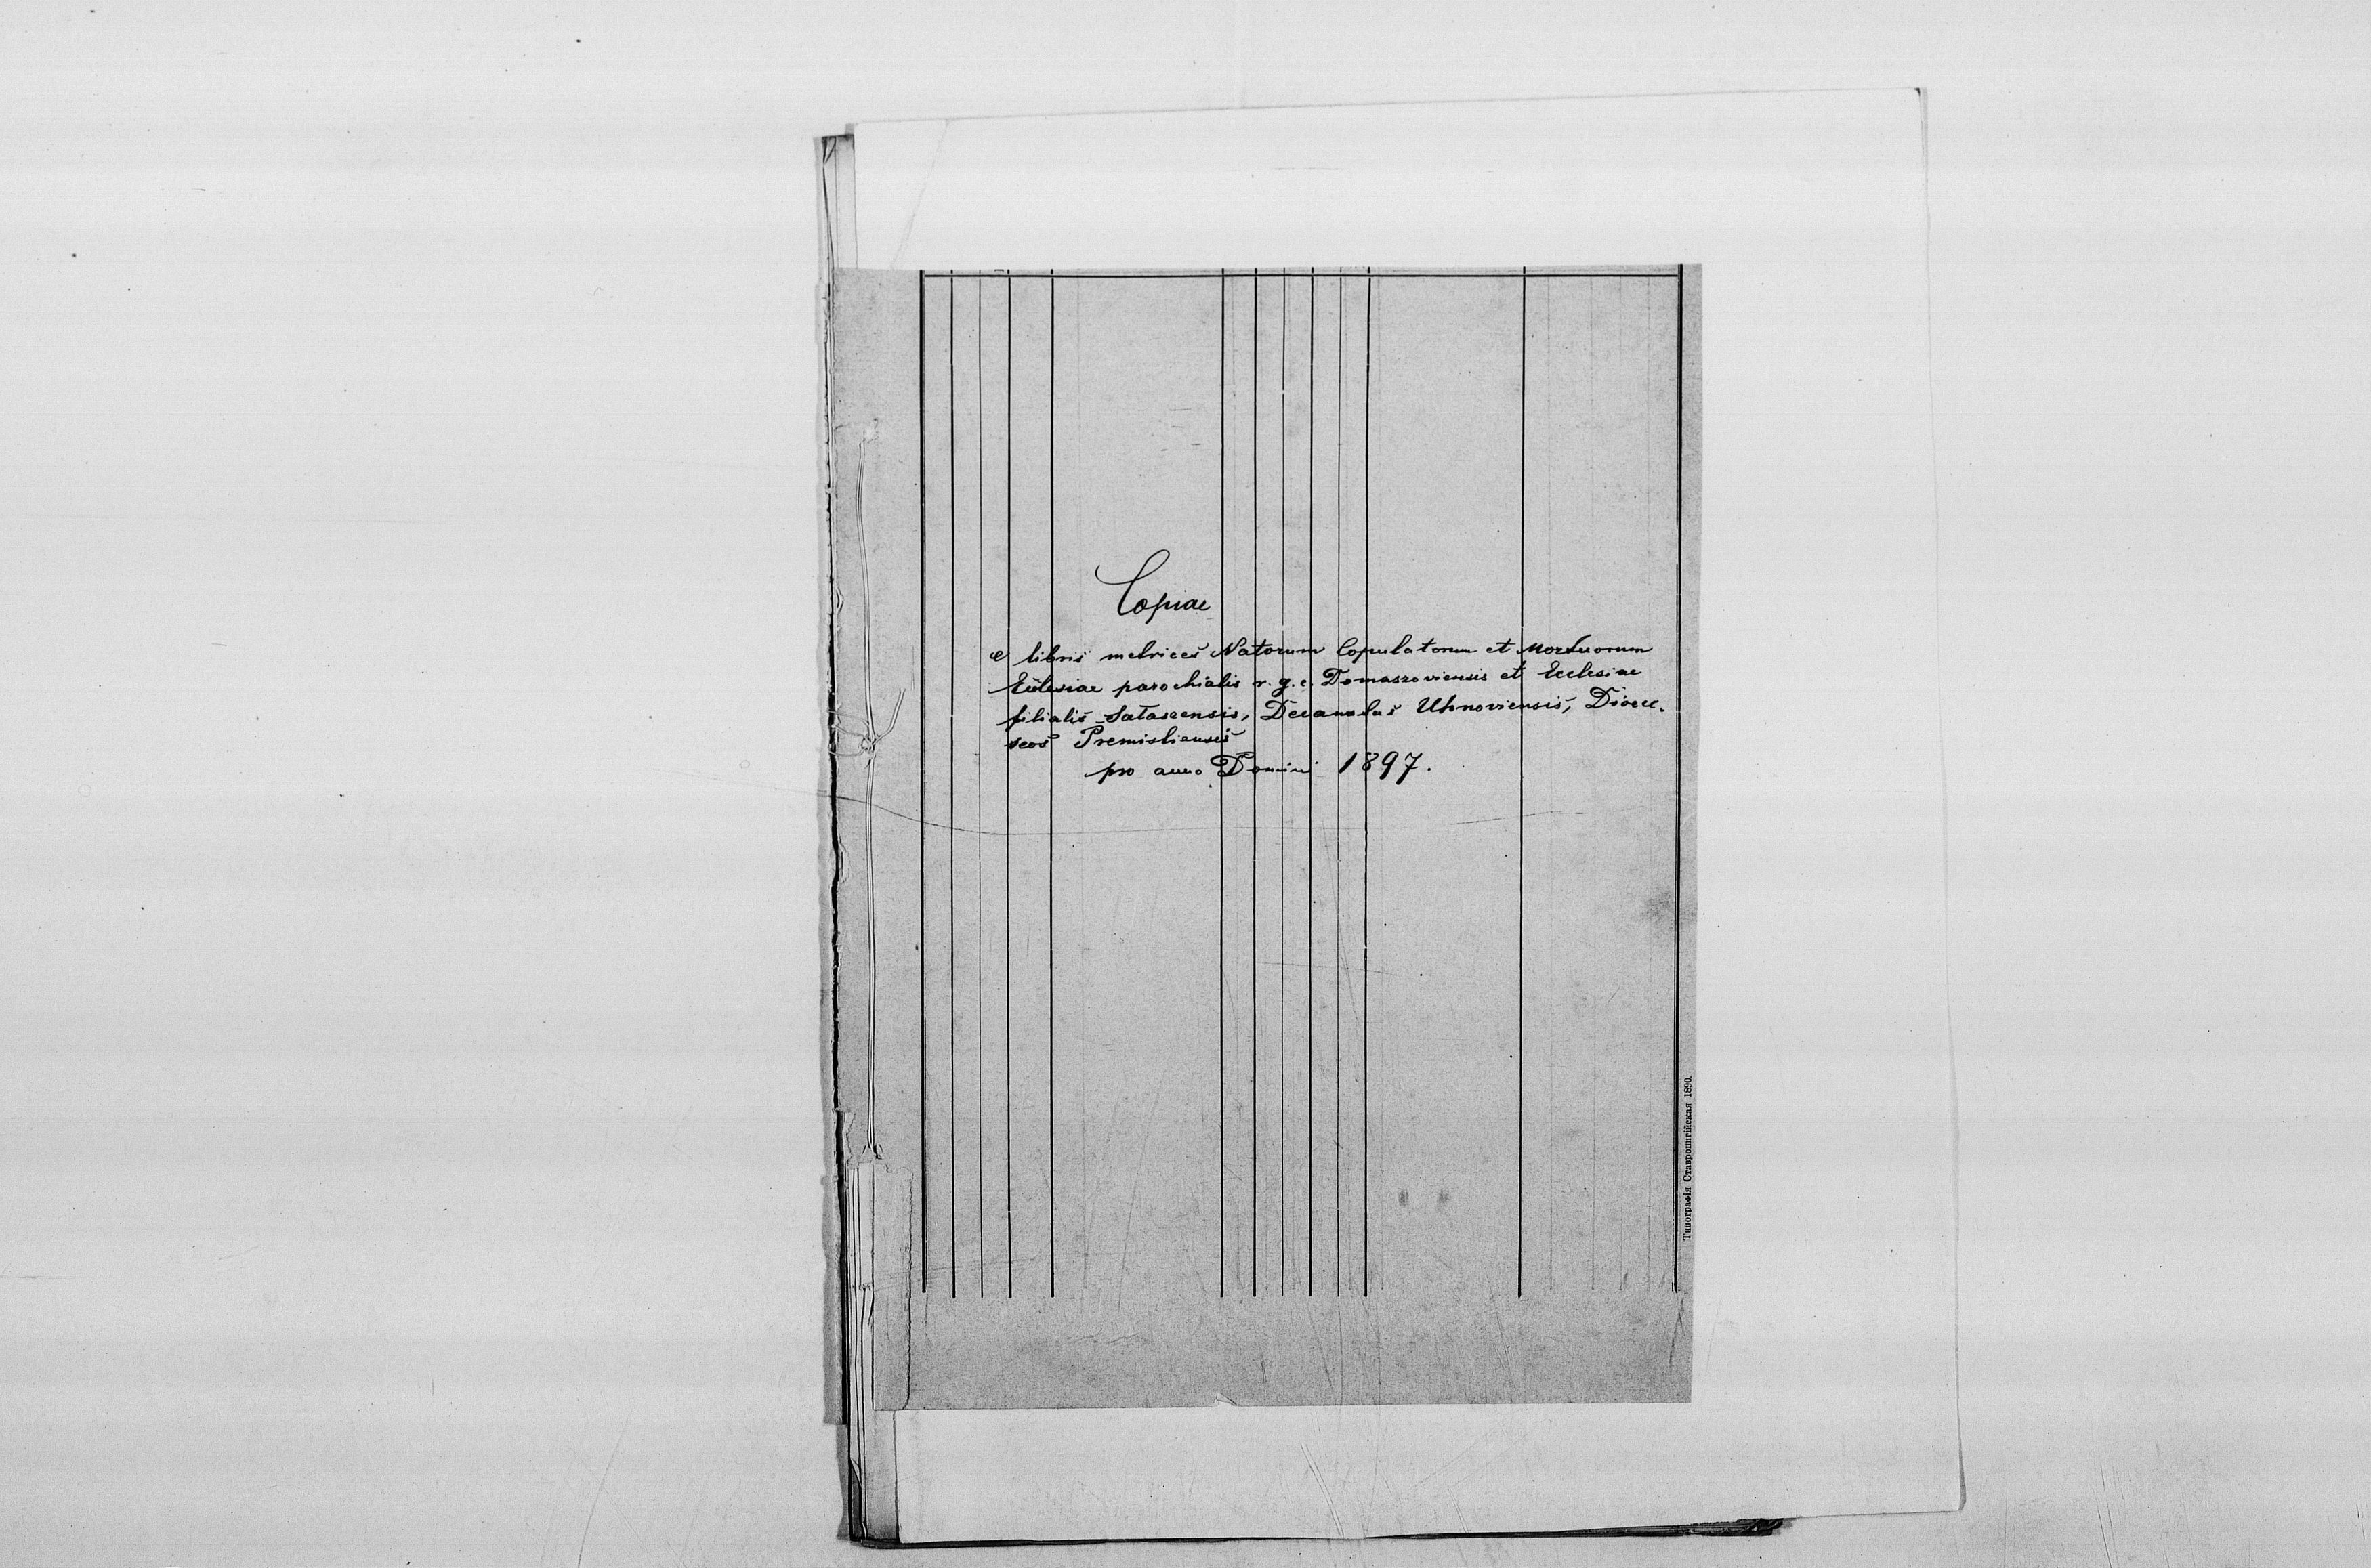 Copiae
e libris metrices Natorum Copulatorum et Mortuorum
Ecclesiae parochialis r. g. c. Domaszoviensis et Ecclesiae
filialis Satascensis, Decanatus Uhnoviensis, Dioece-
seos Premisliensis
pro anno Domini 1897.
Типографія Ставропигійская 1890.